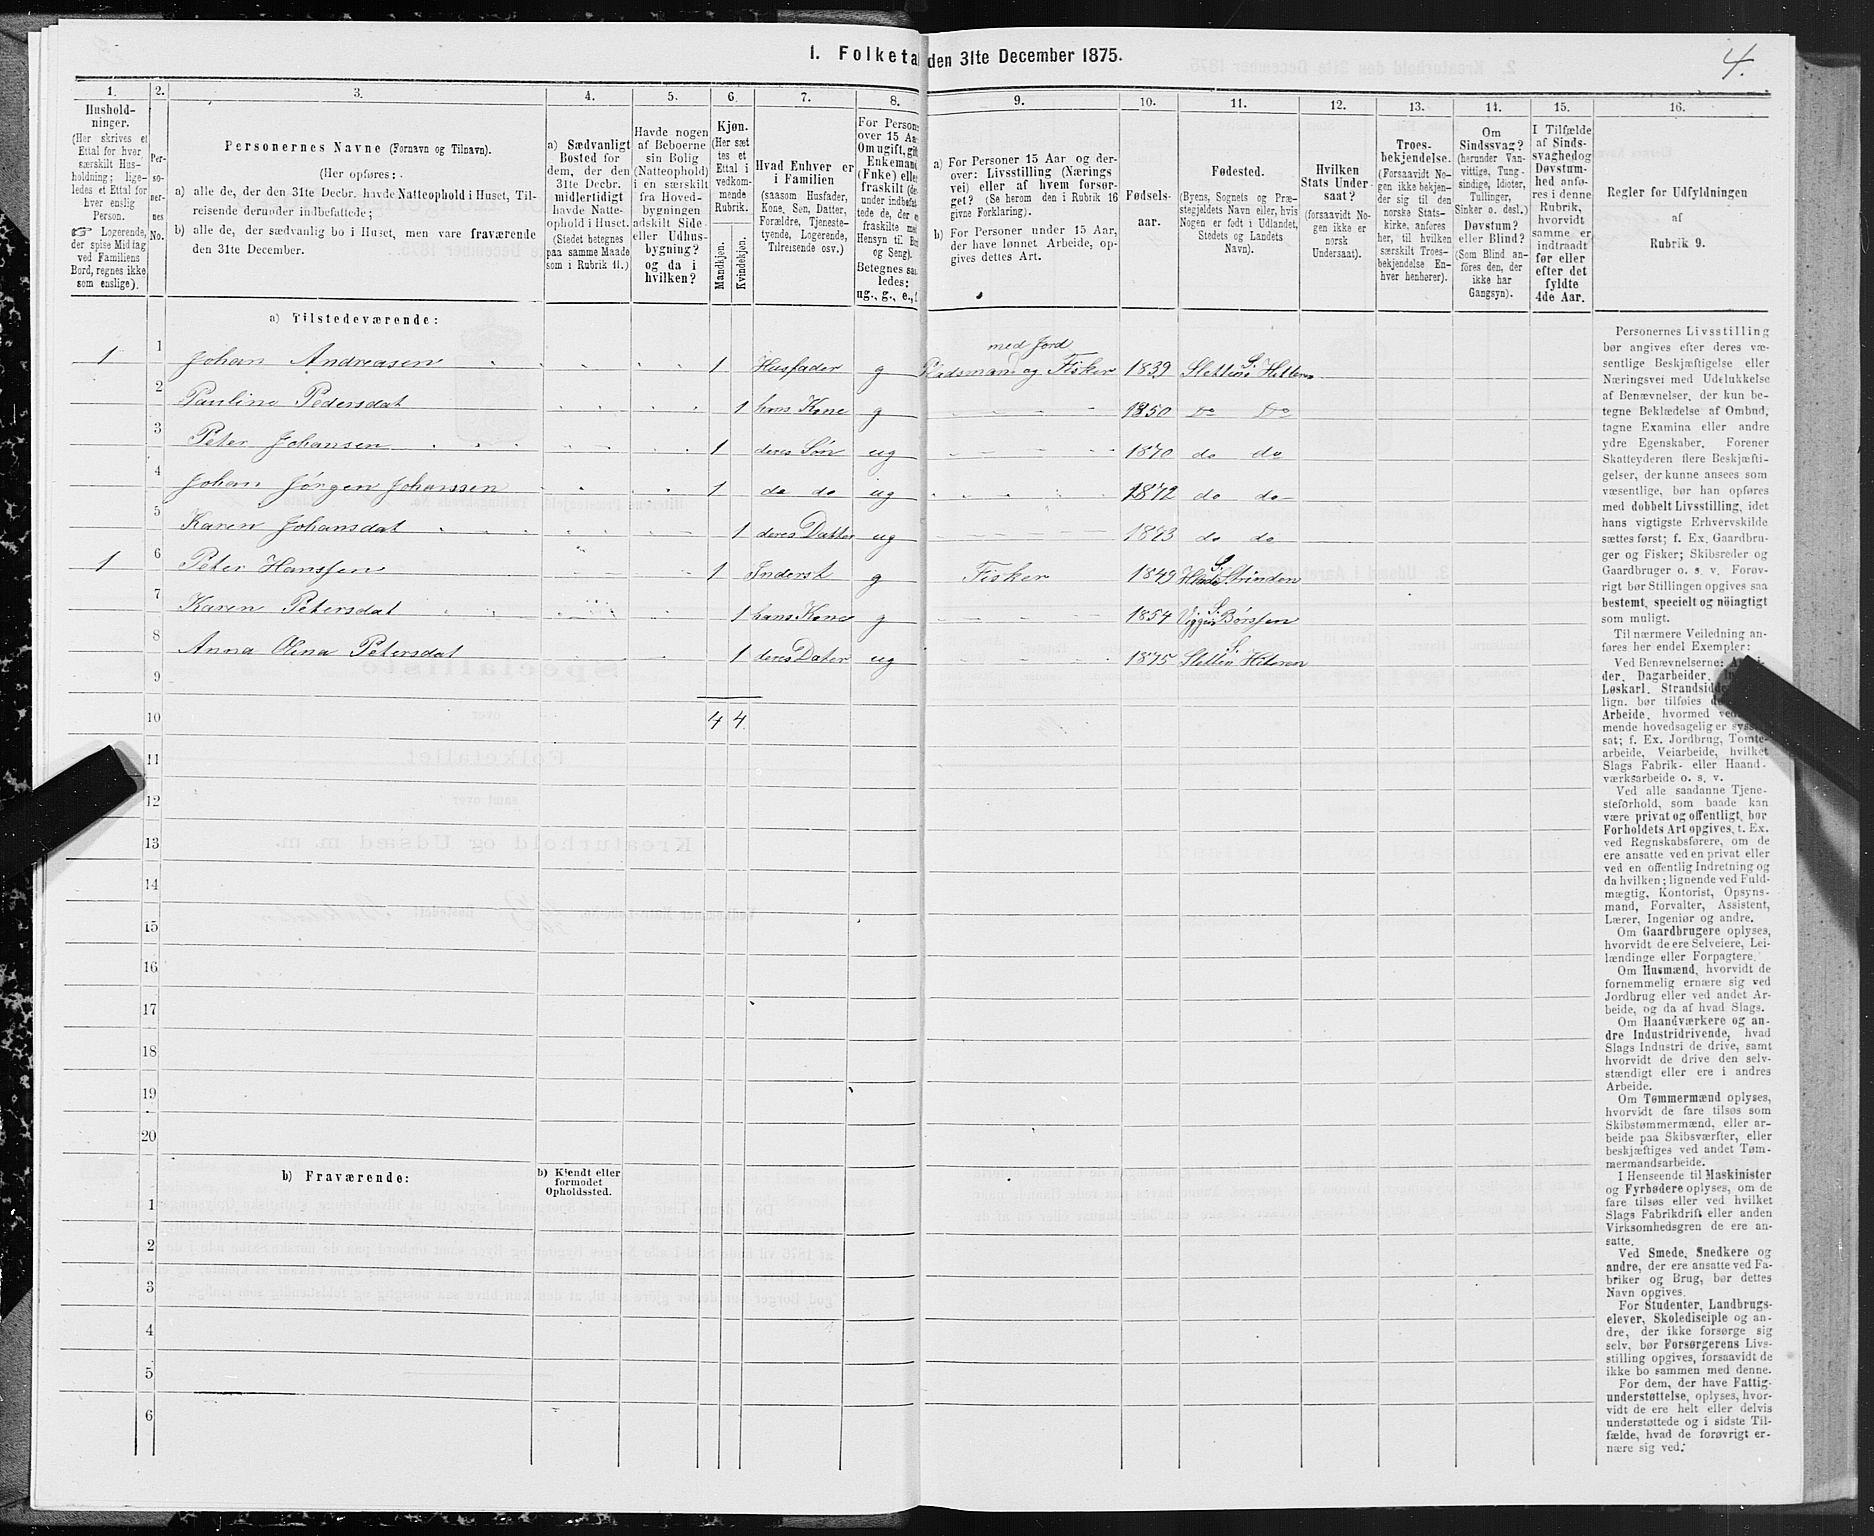 4.
1. Folketa den 31te December 1875.
1. 2. 3. 4. 5. 6. 7. 8. 9. 10. 11. 12. 13. 14. 15. 16.
Hushold-
ninger.
(Her skrives et
Ettal for hver
særskilt Hus-
holdning; lige-
ledes et Ettal for
hver enslig
Person.
☞ Logerende,
der spise Middag
ved Familiens
Bord, regnes ikke
som enslige).
Per-
so-
ner-
nes
No.
Personernes Navne (Fornavn og Tilnavn).
(Her opføres:
a) alle de, der den 31te Decbr. havde Natteophold i Huset, Til-
reisende derunder indbefattede;
b) alle de, der sædvanlig bo i Huset, men vare fraværende
den 31te December.
a) Sædvanligt
Bosted for
dem, der den
31te Decbr.
midlertidigt
havde Natte-
ophold i Huset.
(Stedet betegnes
paa samme Maade
som i Rubrik 11.)
Havde nogen
af Beboerne
sin Bolig
(Natteophold)
i en særskilt
fra Hoved-
bygningen
adskilt Side-
eller Udhus-
bygning?
og da i
hvilken?
Kjøn.
(Her sæt
tes et
Ettal i
vedkom-
mende
Rubrik.
Mandkjøn.
Kvindekjøn.
Hvad Enhver er
i Familien
(saasom Husfader,
Kone, Søn, Datter,
Forældre, Tjeneste-
tyende, Logerende,
Tilreisende osv.)
For Persone
over 15 Aa
Om ugift, gift
Enkemand
(Enke) elle
fraskilt (de
under indbefat
tede de, der e
fraskilte med
Hensyn til Bo
og Seng).
Betegnes saa
ledes:
ug., g., e.,
a) For Personer 15 Aar og der-
over: Livsstilling (Nærings
vei) eller af hvem forsør-
get? (Se herom den i Rubrik 16
givne Forklaring).
b) For Personer under 15 Aar,
der have lønnet Arbeide, op-
gives dettes Art.
Fødsels-
aar.
Fødested.
(Byens, Sognets og Præ-
stegjeldets Navn eller, hvis
Nogen er født i Udlandet,
Stedets og Landets
Navn).
Hvilken
Stats Under-
saat?
(forsaavidt No-
gen ikke er
norsk
Undersaat).
Troes-
bekjendelse.
(Forsaavidt No-
gen ikke bekjen-
der sig til den
norske Stats-
kirke, anføres
her, til hvilken
særskilt Troes-
bekjendelse En-
hver henhører).
Om
Sindssvag?
(herunder Van-
vittige, Tung-
sindige, Idioter,
Tullinger,
Sinker o. desl.)
Døvstum?
eller Blind?
(Som Blind an-
føres den, der
ikke har
Gangsyn).
I Tilfælde
af Sinds-
svaghedog
Døvstum-
hed anfø-
res i denne
Rubrik,
hvorvidt
samme er
indtraadt
før eller
efter det
fyldte
4de Aar.
Regler for Udfyldningen
af
Rubrik 9.
a) Tilstedeværende:
1 1 Johan Andreasen 1 Husfader g Pladsmand med Jord og Fisker 1839 Sletten S. Hitteren
2 Pauline Pedersdat 1 hans Kone g 1850 Do Do
3 Peter Johansen 1 deres Søn ug 1870 do do
4 Johan Jørgen Johanssen 1 do do ug 1872 do do
5 Karen Johansdat 1 deres Datter ug 1873 do do
1 6 Peter Hanssen 1 Inderst g Fisker 1849 S. Strinden
7 Karen Petersdat 1 hans Kone g 1854 S. Børssen
8 Anna Olina Petersdat 1 deres Dater ug 1875 Sletten S. Hiteren
9
10 4 4
11
12
13
14
15
16
17
18
19
20
b) Fraværende:
b) Kjendt eller
formodet
Opholdssted.
1
2
3
4
5
6
Personernes Livsstilling
bør angives efter deres væ-
sentlige Beskjæftigelse eller
Næringsvei med Udelukkelse
af Benævnelser, der kun be-
tegne Beklædelse af Ombud,
tagne Examina eller andre
ydre Egenskaber. Forener
Skatteyderen flere Beskjæfti-
gelser, der kunne ansees som
væsentlige, bør han opføres
med dobbelt Livsstilling, idet
hans vigtigste Erhvervskilde
sættes først; f. Ex. Gaardbru-
ger og Fisker; Skibsreder og
Gaardbruger o. s. v. Forøv-
rigt bør Stillingen opgives saa
bestemt, specielt og nöiagtigt
som muligt.
Til nærmere Veiledning an-
føres her endel Exempler:
Ved Benævnelserne:
der, Dagarbeider,
Løskarl, Strandsidde
lign. bør tilføies
Arbeide, hvormed ved
mende hovedsagelig er syssel
sat; f. Ex. Jordbrug, Tomte-
arbeide, Veiarbeide, hvilket
Slags Fabrik- eller Haand-
værksarbeide o. s. v.
Ved alle saadanne Tjene-
steforhold, som baade kan
være privat og offentligt, bør
Forholdets Art opgives, t. Ex.
ved Regnskabsførere, om de
ere ansatte ved en privat eller
ved en offentlig Indretning og
da hvilken; lignende ved Fuld-
mægtig, Kontorist, Opsyns-
mand, Forvalter, Assistent,
Lærer, Ingeniør og andre.
Om Gaardbrugere oplyses,
hvorvidt de ere Selveiere, Lei-
lændinge eller Forpagtere.
Om Husmænd, hvorvidt de
fornemmelig ernære sig ved
Jordbrug eller ved andet Ar-
beide, og da af hvad Slags.
Om Haandværkere og an-
dre Industridrivende, hvad
Slags Industri de drive, samt
hvorvidt de drive den selv-
stændigt eller ere i andres
Arbeide.
Om Tømmermænd oplyses,
hvorvidt de fare tilsøs som
Skibstømmermænd, eller ar-
beide paa Skibsværfter, eller
beskjæftiges ved andet Tøm-
mermandsarbeide.
I Henseende til Maskinister
og Fyrbødere oplyses, om de
fare tilsøs eller ved hvilket
Slags Fabrikdrift eller anden
Virksomhedsgren de ere an-
satte.
Ved Smede, Snedkere og
andre, der ere ansatte ved Fa-
briker og Brug, bør dettes
Navn opgives.
For Studenter, Landbrugs-
elever, Skoledisciple og an-
dre, der ikke forsørge sig
selv, bør Forsørgerens Livs-
stilling opgives, forsaavidt de
ikke bo sammen med denne.
For dem, der have Fattig-
understøttelse, oplyses, hvor-
vidt de ere helt eller delvis
understøttede og i sidste Til-
fælde, hvad de forøvrigt er-
nære sig ved.